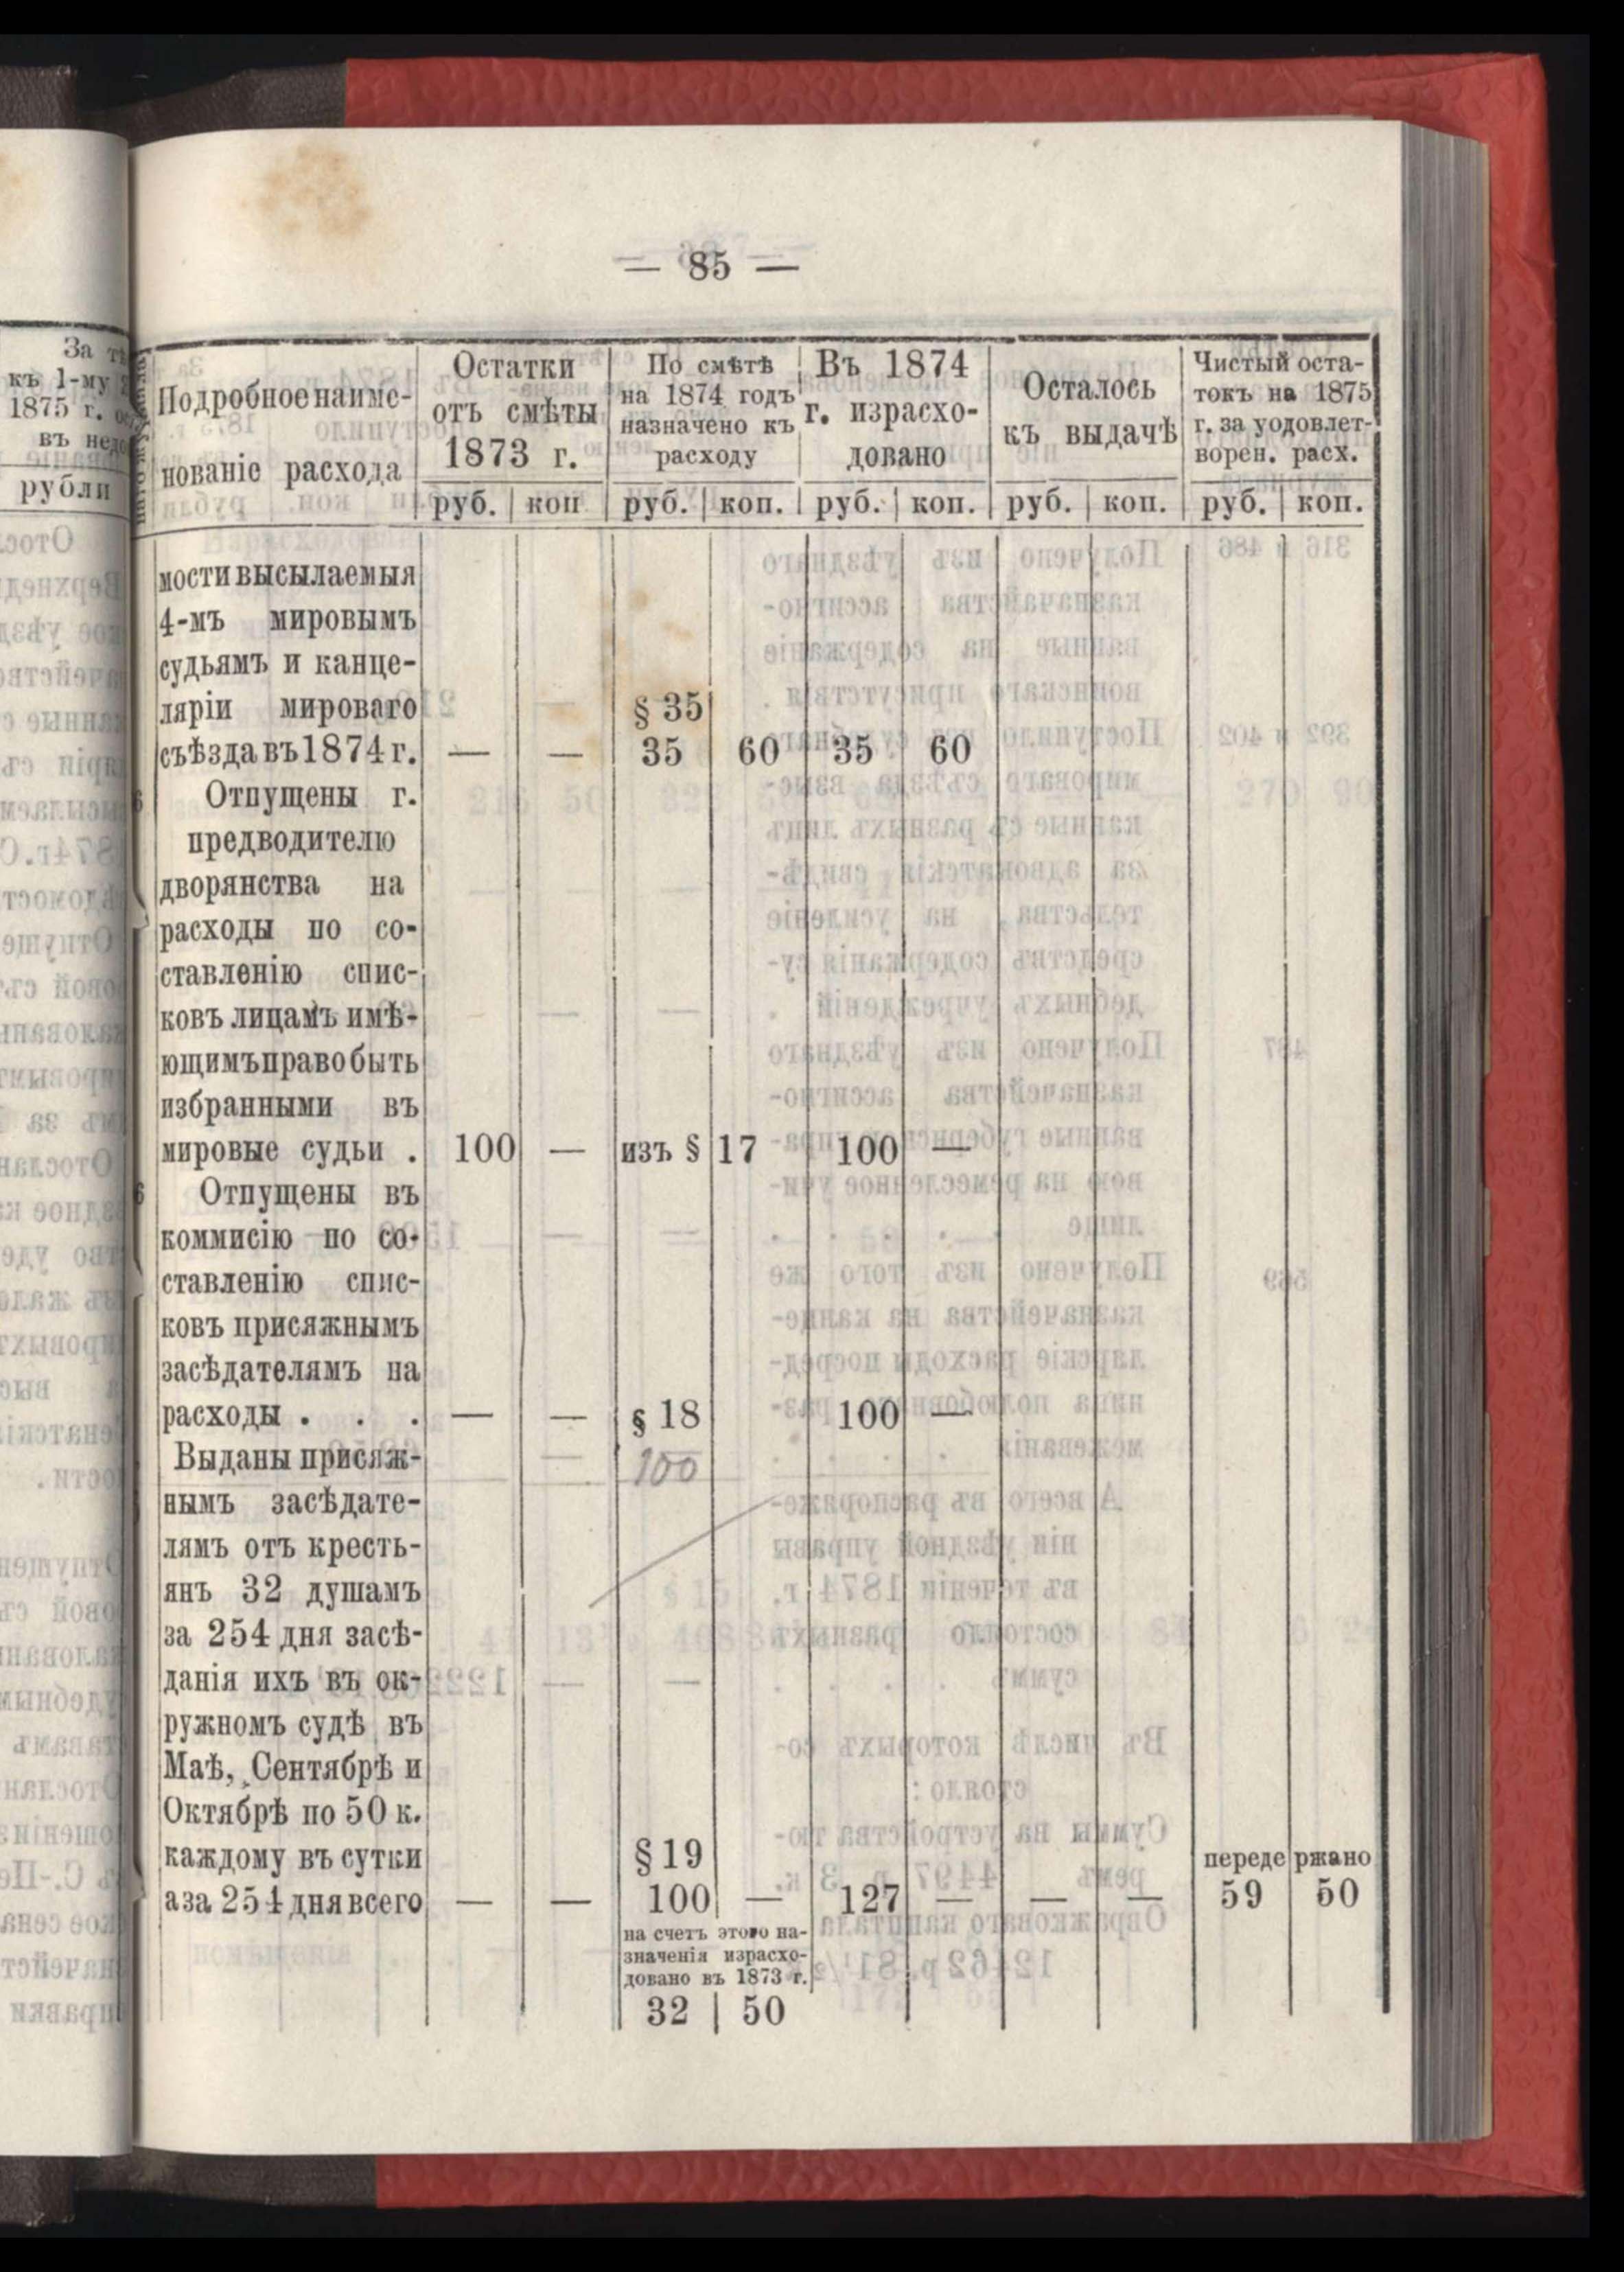 — 85 —
За
къ 1-му
1875 г.
въ
рубли
Подробное наиме-
нованіе расхода
Остатки
отъ смѣты
1873 г.
По смѣтѣ
на 1874 годъ
назначено къ
расходу
Въ 1874
г. израсхо-
довано
Осталось
къ выдачѣ
Чистый оста-
токъ на 1875
г. за уодовлет-
ворен. расх.
руб. коп руб. коп. руб. коп. руб. коп. руб. коп.
мости высылаемыя
4-мъ мировымъ
судьямъ и канце-
ляріи мироваго § 35
съѣзда въ 1874 г. — — 35 60 35 60
Отпущены г.
предводителю
дворянства на
расходы по со-
ставленію спис-
ковъ лицамъ имѣ-
ющимъ право быть
избранными въ
мировые судьи . 100 — изъ § 17 100 —
Отпущены въ
коммисію по со-
ставленію спис-
ковъ присяжнымъ
засѣдателямъ на
расходы . . . — — § 18 100 —
100
Выданы присяж-
нымъ засѣдате-
лямъ отъ кресть-
янъ 32 душамъ
за 254 дня засѣ-
данія ихъ въ ок-
ружномъ судѣ въ
Маѣ, Сентябрѣ и
Октябрѣ по 50 к.
каждому въ сутки § 19 передержано
а за 254 дня всего — — 100 — 127 — — — 59 50
на счетъ этого на-
значенія израсхо-
довано въ 1873 г.
32 50